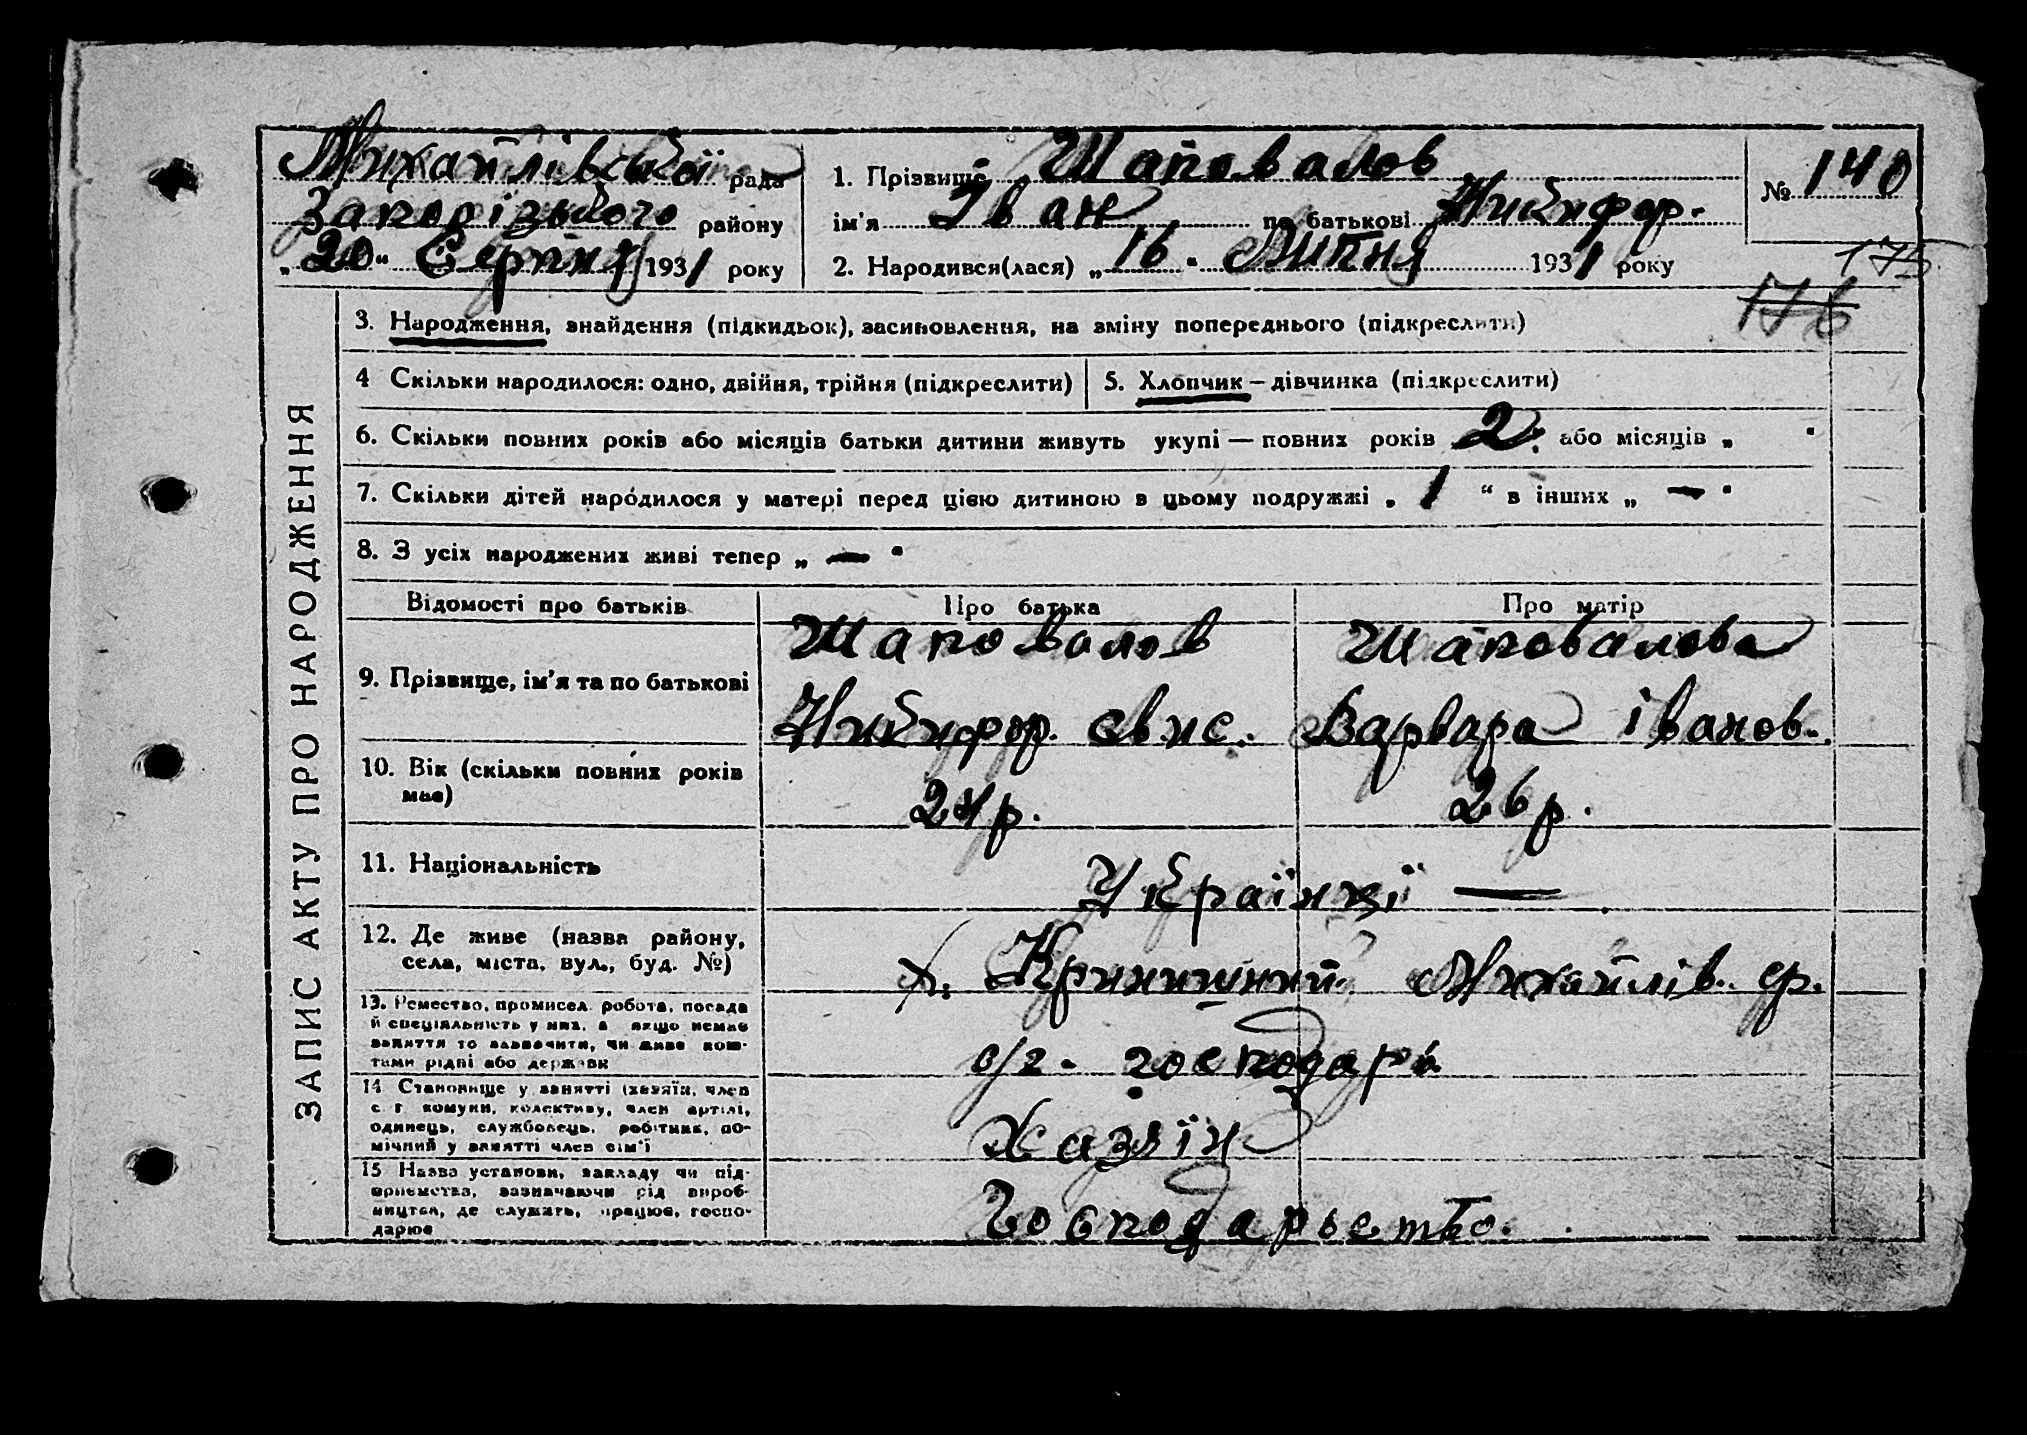 Михайлівської рада
Запорізького району
„20“ Серпня 1931 року
1. Прізвище Шаповалов
ім'я Іван по батькові Никифор.
2. Народився(лася) „16“ Липня 1931 року
№ 140
175
176
ЗАПИС АКТУ ПРО НАРОДЖЕННЯ
3. Народження, знайдення (підкидьок), засиновлення, на зміну попереднього (підкреслити)
4 Скільки народилося: одно, двійня, трійня (підкреслити)
5. Хлопчик – дівчинка (підкреслити)
6. Скільки повних років або місяців батьки дитини живуть укупі — повних років 2. або місяців „ "
7. Скільки дітей народилося у матері перед цією дитиною в цьому подружжі „ 1 “ в інших „ — "
8. З усіх народжених живі тепер „ — "
Відомості про батьків
Про батька
Про матір
9. Прізвище, ім'я та по батькові
Шаповалов
Никифор.
Шаповалова
Варвара Іванов.
10. Вік (скільки повних років
має)
24 р.
26 р.
11. Національність
Українці —
12. Де живе (назва району,
села, міста, вул., буд. №)
х. Криничний Михайлів. ср.
13. Ремество, промисел, робота, посада
й спеціяльність у них, а якщо немає
заняття то зазначити, чи живе кош-
тами рідні або держави
с/г. господар
14 Становище у занятті (хазяїн, член
с. г. комуни, колективу, член артілі,
одинець, службовець, робітник, по-
мічний у занятті член сім'ї
Хазяїн
15 Назва установи, закладу чи під-
приємства, зазначаючи рід вироб-
ництва, де служить, працює, госпо-
дарює
Господарьство.